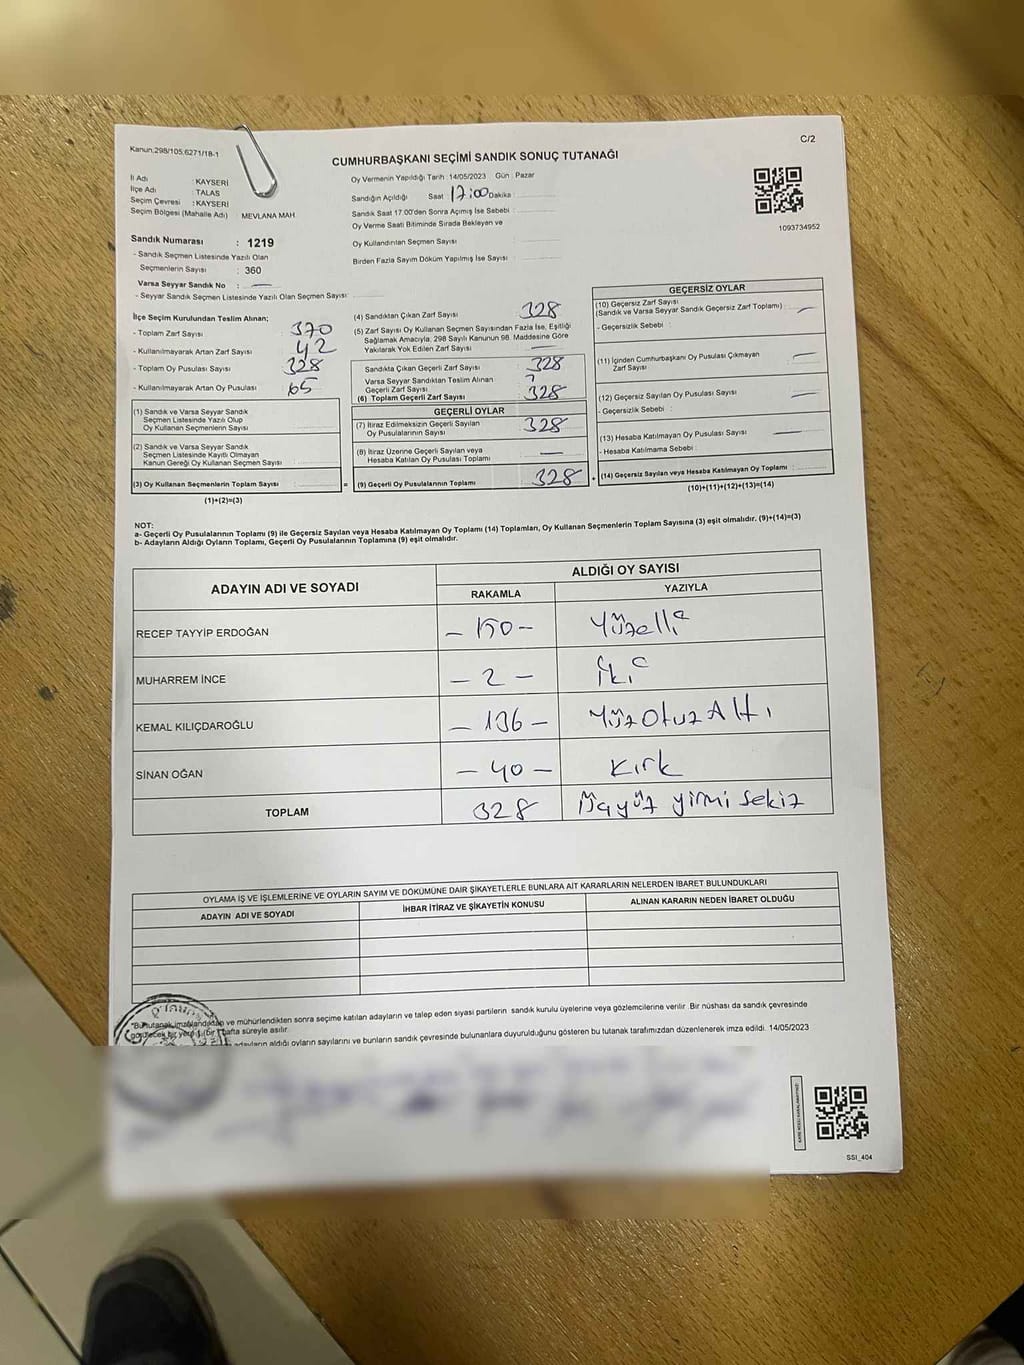 Kanun.298/105.6271/18-1
C/2
CUMHURBAŞKANI SEÇİMİ SANDIK SONUÇ TUTANAĞI
İl Adı : KAYSERİ
İlçe Adı : TALAS
Seçim Çevresi : KAYSERİ
Seçim Bölgesi (Mahalle Adı) MEVLANA MAH.
Sandık Numarası : 1219
- Sandık Seçmen Listesinde Yazılı Olan
Seçmenlerin Sayısı : 360
Varsa Seyyar Sandık No : —
- Seyyar Sandık Seçmen Listesinde Yazılı Olan Seçmen Sayısı:
Oy Vermenin Yapıldığı Tarih :14/05/2023 Gün : Pazar
Sandığın Açıldığı Saat 17:00 Dakika :
Sandık Saat 17:00'den Sonra Açımış İse Sebebi :
Oy Verme Saati Bitiminde Sırada Bekleyen ve
Oy Kullandırılan Seçmen Sayısı :
Birden Fazla Sayım Döküm Yapılmış İse Sayısı :
1093734952
İlçe Seçim Kurulundan Teslim Alınan;
- Toplam Zarf Sayısı : 370
- Kullanılmayarak Artan Zarf Sayısı : 42
- Toplam Oy Pusulası Sayısı : 328
- Kullanılmayarak Artan Oy Pusulası : 65
(1) Sandık ve Varsa Seyyar Sandık
Seçmen Listesinde Yazılı Olup
Oy Kullanan Seçmenlerin Sayısı :
(2) Sandık ve Varsa Seyyar Sandık
Seçmen Listesinde Kayıtlı Olmayan
Kanun Gereği Oy Kullanan Seçmen Sayısı :
(3) Oy Kullanan Seçmenlerin Toplam Sayısı : =
(1)+(2)=(3)
(4) Sandıktan Çıkan Zarf Sayısı : 328
(5) Zarf Sayısı Oy Kullanan Seçmen Sayısından Fazla İse, Eşitliği
Sağlamak Amacıyla; 298 Sayılı Kanunun 98. Maddesine Göre
Yakılarak Yok Edilen Zarf Sayısı : —
Sandıkta Çıkan Geçerli Zarf Sayısı : 328
Varsa Seyyar Sandıktan Teslim Alınan
Geçerli Zarf Sayısı :
(6) Toplam Geçerli Zarf Sayısı : 328
GEÇERLİ OYLAR
(7) İtiraz Edilmeksizin Geçerli Sayılan
Oy Pusulalarının Sayısı : 328
(8) İtiraz Üzerine Geçerli Sayılan veya
Hesaba Katılan Oy Pusulası Toplamı : —
(9) Geçerli Oy Pusulalarının Toplamı : 328 +
GEÇERSİZ OYLAR
(10) Geçersiz Zarf Sayısı
(Sandık ve Varsa Seyyar Sandık Geçersiz Zarf Toplamı) : —
- Geçersizlik Sebebi :
(11) İçinden Cumhurbaşkanı Oy Pusulası Çıkmayan
Zarf Sayısı : —
(12) Geçersiz Sayılan Oy Pusulası Sayısı : —
- Geçersizlik Sebebi :
(13) Hesaba Katılmayan Oy Pusulası Sayısı : —
- Hesaba Katılmama Sebebi :
(14) Geçersiz Sayılan veya Hesaba Katılmayan Oy Toplamı :
(10)+(11)+(12)+(13)=(14)
NOT:
a- Geçerli Oy Pusulalarının Toplamı (9) ile Geçersiz Sayılan veya Hesaba Katılmayan Oy Toplamı (14) Toplamları, Oy Kullanan Seçmenlerin Toplam Sayısına (3) eşit olmalıdır. (9)+(14)=(3)
b- Adayların Aldığı Oyların Toplamı, Geçerli Oy Pusulalarının Toplamına (9) eşit olmalıdır.
ADAYIN ADI VE SOYADI ALDIĞI OY SAYISI
RAKAMLA YAZIYLA
RECEP TAYYİP ERDOĞAN – 150 – Yüzelli
MUHARREM İNCE – 2 – İki
KEMAL KILIÇDAROĞLU – 136 – YüzOtuzAltı
SİNAN OĞAN – 40 – Kırk
TOPLAM 328 Üçyüz yirmi sekiz
OYLAMA İŞ VE İŞLEMLERİNE VE OYLARIN SAYIM VE DÖKÜMÜNE DAİR ŞİKAYETLERLE BUNLARA AİT KARARLARIN NELERDEN İBARET BULUNDUKLARI
ADAYIN ADI VE SOYADI İHBAR İTİRAZ VE ŞİKAYETİN KONUSU ALINAN KARARIN NEDEN İBARET OLDUĞU
*Bu tutanak imzalandıktan ve mühürlendikten sonra seçime katılan adayların ve talep eden siyasi partilerin sandık kurulu üyelerine veya gözlemcilerine verilir. Bir nüshası da sandık çevresinde
görülecek bir yere 1 (bir) hafta süreyle asılır.
adayların aldığı oyların sayılarını ve bunların sandık çevresinde bulunanlara duyurulduğunu gösteren bu tutanak tarafımızdan düzenlenerek imza edildi. 14/05/2023
SSI_404